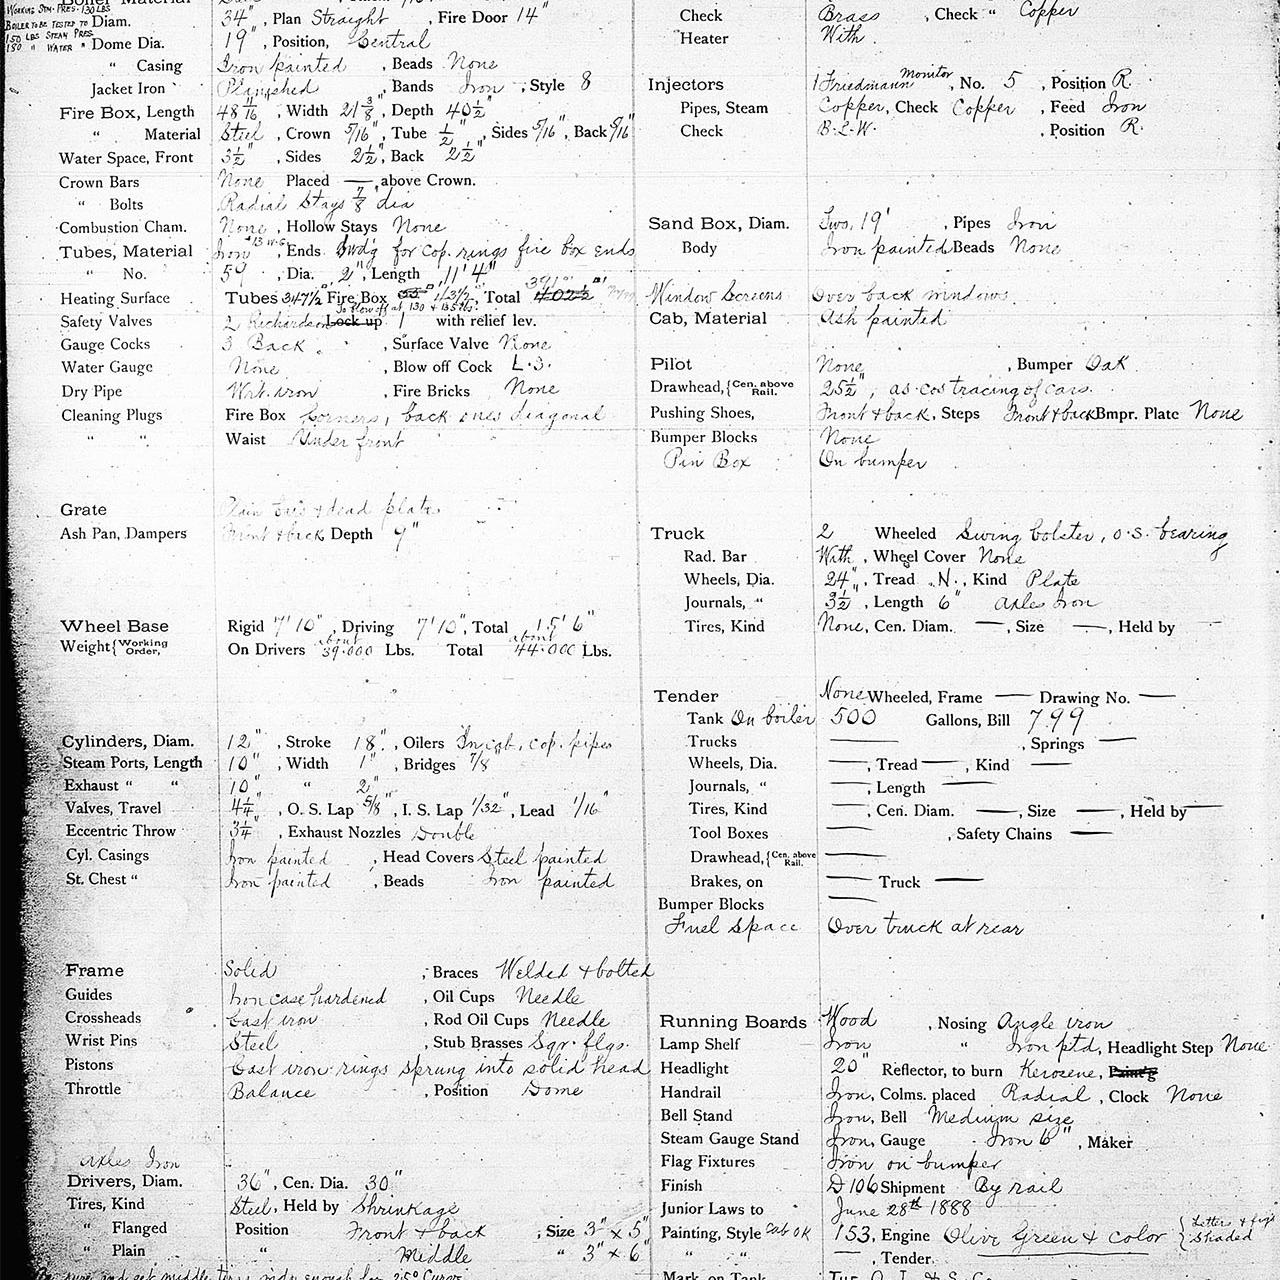 WORKING STM. PRES. 130 LBS
BOILER TO BE TESTED TO
150 LBS STEAM PRES.
180 " WATER "
Boiler Material
Diam. 34", Plan Straight, Fire Door 14"
Dome Dia. 19", Position, Central
" Casing Iron painted, Beads None
Jacket Iron Planished, Bands Iron, Style 8
Fire Box, Length 48 11/16", Width 21 3/8", Depth 40 1/2"
" Material Steel, Crown 5/16", Tube 1/2", Sides 5/16", Back 5/16"
Water Space, Front 3 1/2", Sides 2 1/2", Back 2 1/2"
Crown Bars None Placed — above Crown.
" Bolts Radial Stays 7/8" dia
Combustion Cham. None, Hollow Stays None
Tubes, Material Iron #13 W.G., Ends Swd'g for Cop. rings fire box ends
" No. 59, Dia. 2", Length 11' 4"
Heating Surface Tubes 347 1/2 Fire Box, Total 402 1/2
To blow off at 130 & 135 lbs.
Safety Valves 2 Richardson Lock up 1 with relief lev.
Gauge Cocks 3 Back, Surface Valve None
Water Gauge None, Blow off Cock L.S.
Dry Pipe Wrt. iron, Fire Bricks None
Cleaning Plugs Fire Box Corners, back ones diagonal
" " Waist Under front
Grate Plain bars & dead plate
Ash Pan, Dampers Front & back Depth 9"
Wheel Base Rigid 7' 10", Driving 7' 10", Total 15' 6"
Weight {Working Order, On Drivers about 39.000 Lbs. Total about 44.000 Lbs.
Cylinders, Diam. 12", Stroke 18", Oilers In cab, cop. pipes
Steam Ports, Length 10", Width 1", Bridges 7/8"
Exhaust " " 10" " 2"
Valves, Travel 4 1/4", O. S. Lap 5/8", I. S. Lap 1/32", Lead 1/16"
Eccentric Throw 3 1/4", Exhaust Nozzles Double
Cyl. Casings Iron painted, Head Covers Steel painted
St. Chest " Iron painted, Beads Iron painted
Frame Solid, Braces Welded & bolted
Guides Iron case hardened, Oil Cups Needle
Crossheads Cast iron, Rod Oil Cups Needle
Wrist Pins Steel, Stub Brasses Sqr. flgs.
Pistons Cast iron rings sprung into solid head
Throttle Balance, Position Dome
Axles Iron
Drivers, Diam. 36", Cen. Dia. 30"
Tires, Kind Steel, Held by Shrinkage
" Flanged Position Front & back, Size 3" x 5"
" Plain " Middle " 3" x 6"
Check Brass, Check " Copper
Heater With
Injectors 1 Friedmann Monitor, No. 5, Position R.
Pipes, Steam Copper, Check Copper, Feed Iron
Check B.L.W., Position R.
Sand Box, Diam. Two, 19", Pipes Iron
Body Iron painted Beads None
Window Screens Over back windows
Cab, Material Ash painted
Pilot None, Bumper Oak
Drawhead, {Cen. above Rail. 25 1/2", as Co's tracing of cars.
Pushing Shoes, Front & back, Steps Front & back Bmpr. Plate None
Bumper Blocks None
Pin Box On bumper
Truck 2 Wheeled Swing bolster, o.s. bearing
Rad. Bar With, Wheel Cover None
Wheels, Dia. 24", Tread N., Kind Plate
Journals, " 3 1/2", Length 6" Axles Iron
Tires, Kind None, Cen. Diam. —, Size —, Held by —
Tender None Wheeled, Frame — Drawing No. —
Tank On boiler 500 Gallons, Bill 799
Trucks —, Springs —
Wheels, Dia. —, Tread —, Kind —
Journals, " —, Length —
Tires, Kind —, Cen. Diam. —, Size —, Held by —
Tool Boxes —, Safety Chains —
Drawhead, {Cen. above Rail. —
Brakes, on — Truck —
Bumper Blocks —
Fuel Space Over truck at rear
Running Boards Wood, Nosing Angle iron
Lamp Shelf Iron " Iron ptd, Headlight Step None
Headlight 20" Reflector, to burn Kerosene, Paint'g
Handrail Iron, Colms. placed Radial, Clock None
Bell Stand Iron, Bell Medium size
Steam Gauge Stand Iron, Gauge Iron 6", Maker
Flag Fixtures Iron on bumper
Finish D 106 Shipment By rail
Junior Laws to June 28th 1888
Painting, Style Cab OK 153, Engine Olive Green & color {Letters & figs Shaded
" " ", Tender.
Mark, on Tank